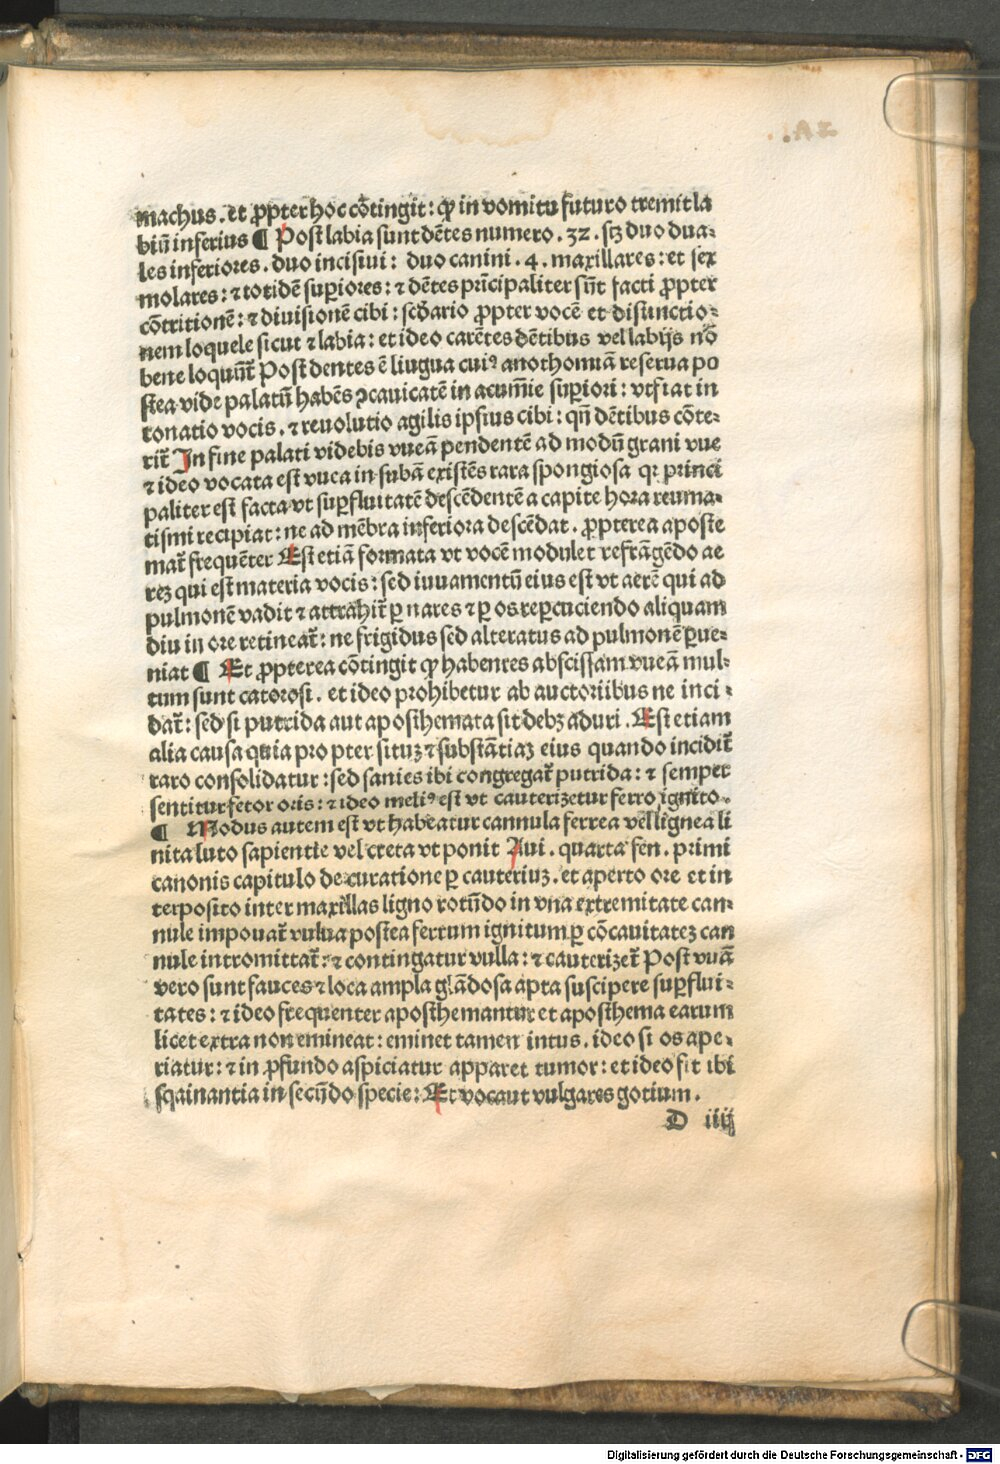 machus. et ꝓpter hoc cõtingit: ꝙ in vomitu futuro tremit la
biũ inferius ¶ Post labia sunt dẽtes numero. 32. scꝫ duo dua-
les inferiores. duo incisiui: duo canini. 4. maxillares: et sex
molares: ⁊ totidẽ suꝑiores: ⁊ dẽtes prĩcipaliter sũt facti ꝓpter
cõtritionẽ: ⁊ diuisionẽ cibi: scđario ꝓpter vocẽ et disunctio-
nem loquele sicut ⁊ labia: et ideo carẽtes dẽtibus vel labijs nõ
bene loquũt̃ Post dentes ẽ liugua cuiꝰ anothomiã reserua po
stea vide palatũ habẽs ꝯcauicatẽ in acumĩe suꝑiori: vt fiat in
tonatio vocis. ⁊ reuolutio agilis ipsius cibi: qñ dẽtibus cõte-
rit̃ In fine palati videbis vueã pendentẽ ad modũ grani vue
⁊ ideo vocata est vuca in subã existẽs rara spongiosa qꝛ prĩnci
paliter est facta vt suꝑfluitatẽ descẽdentẽ a capite hora reuma-
tismi recipiat: ne ad mẽbra inferiora descẽdat. ꝓpterea aposte
mat̃ frequẽter Est etiã formata vt vocẽ modulet refrãgẽdo ae
reꝫ qui est materia vocis: sed iuuamentũ eius est vt aerẽ qui ad
pulmonẽ vadit ⁊ attrahit̃ ꝑ nares ⁊ ꝑ os reꝑcuciendo aliquam
diu in ore retineat̃: ne frigidus sed alteratus ad pulmonẽ ꝑue-
niat ¶ Et ꝓpterea cõtingit ꝙ habenres abscissam vueã mul-
tum sunt catorosi. et ideo prohibetur ab auctoriibus ne inci-
dat̃: sed si putrida aut aposthemata sit debꝫ aduri. Est etiam
alia causa quia pro pter situꝫ ⁊ substãtiaꝫ eius quando incidit̃
raro consolidatur: sed sanies ibi congregat̃ putrida: ⁊ semper
sentitur fetor oris: ⁊ ideo meliꝰ est vt cauterizetur ferro ignito.
¶ Modus autem est vt habeatur cannula ferrea vel lignea li
nita luto sapientie vel creta vt ponit Aui. quarta fen. primi
canonis capitulo de curatione ꝑ cauteriuꝫ. et aperto ore et in
terposito inter maxillas ligno rotũdo in vna extremitate can-
nule impouat̃ vulua postea ferrum ignitum ꝑ cõcauitateꝫ can
nule intromittat̃: ⁊ contingatur vulla: ⁊ cauterizet̃ Post vuã
vero sunt fauces ⁊ loca ampla glãdosa apta suscipere suꝑflui-
tates: ⁊ ideo frequenter aposthemantur et aposthema earum
licet extra non emineat: eminet tamen intus. ideo si os ape-
riatur: ⁊ in ꝓfundo aspiciatur apparet tumor: et ideo fit ibi
sqainantia in secũdo specie: Et vocaut vulgares gotium.
D iiij
Digitalisierung gefördert durch die Deutsche Forschungsgemeinschaft - DFG